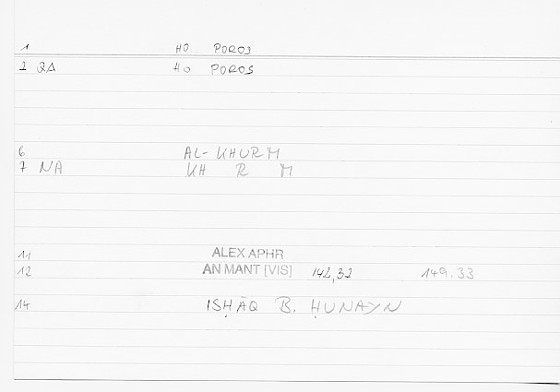 1 HO POROS
2 QA HO POROS
6 AL-KHURM
7 NA KH R M
11 ALEX APHR
12 AN MANT [VIS] 142,32 149.33
14 ISḤĀQ B. ḤUNAYN